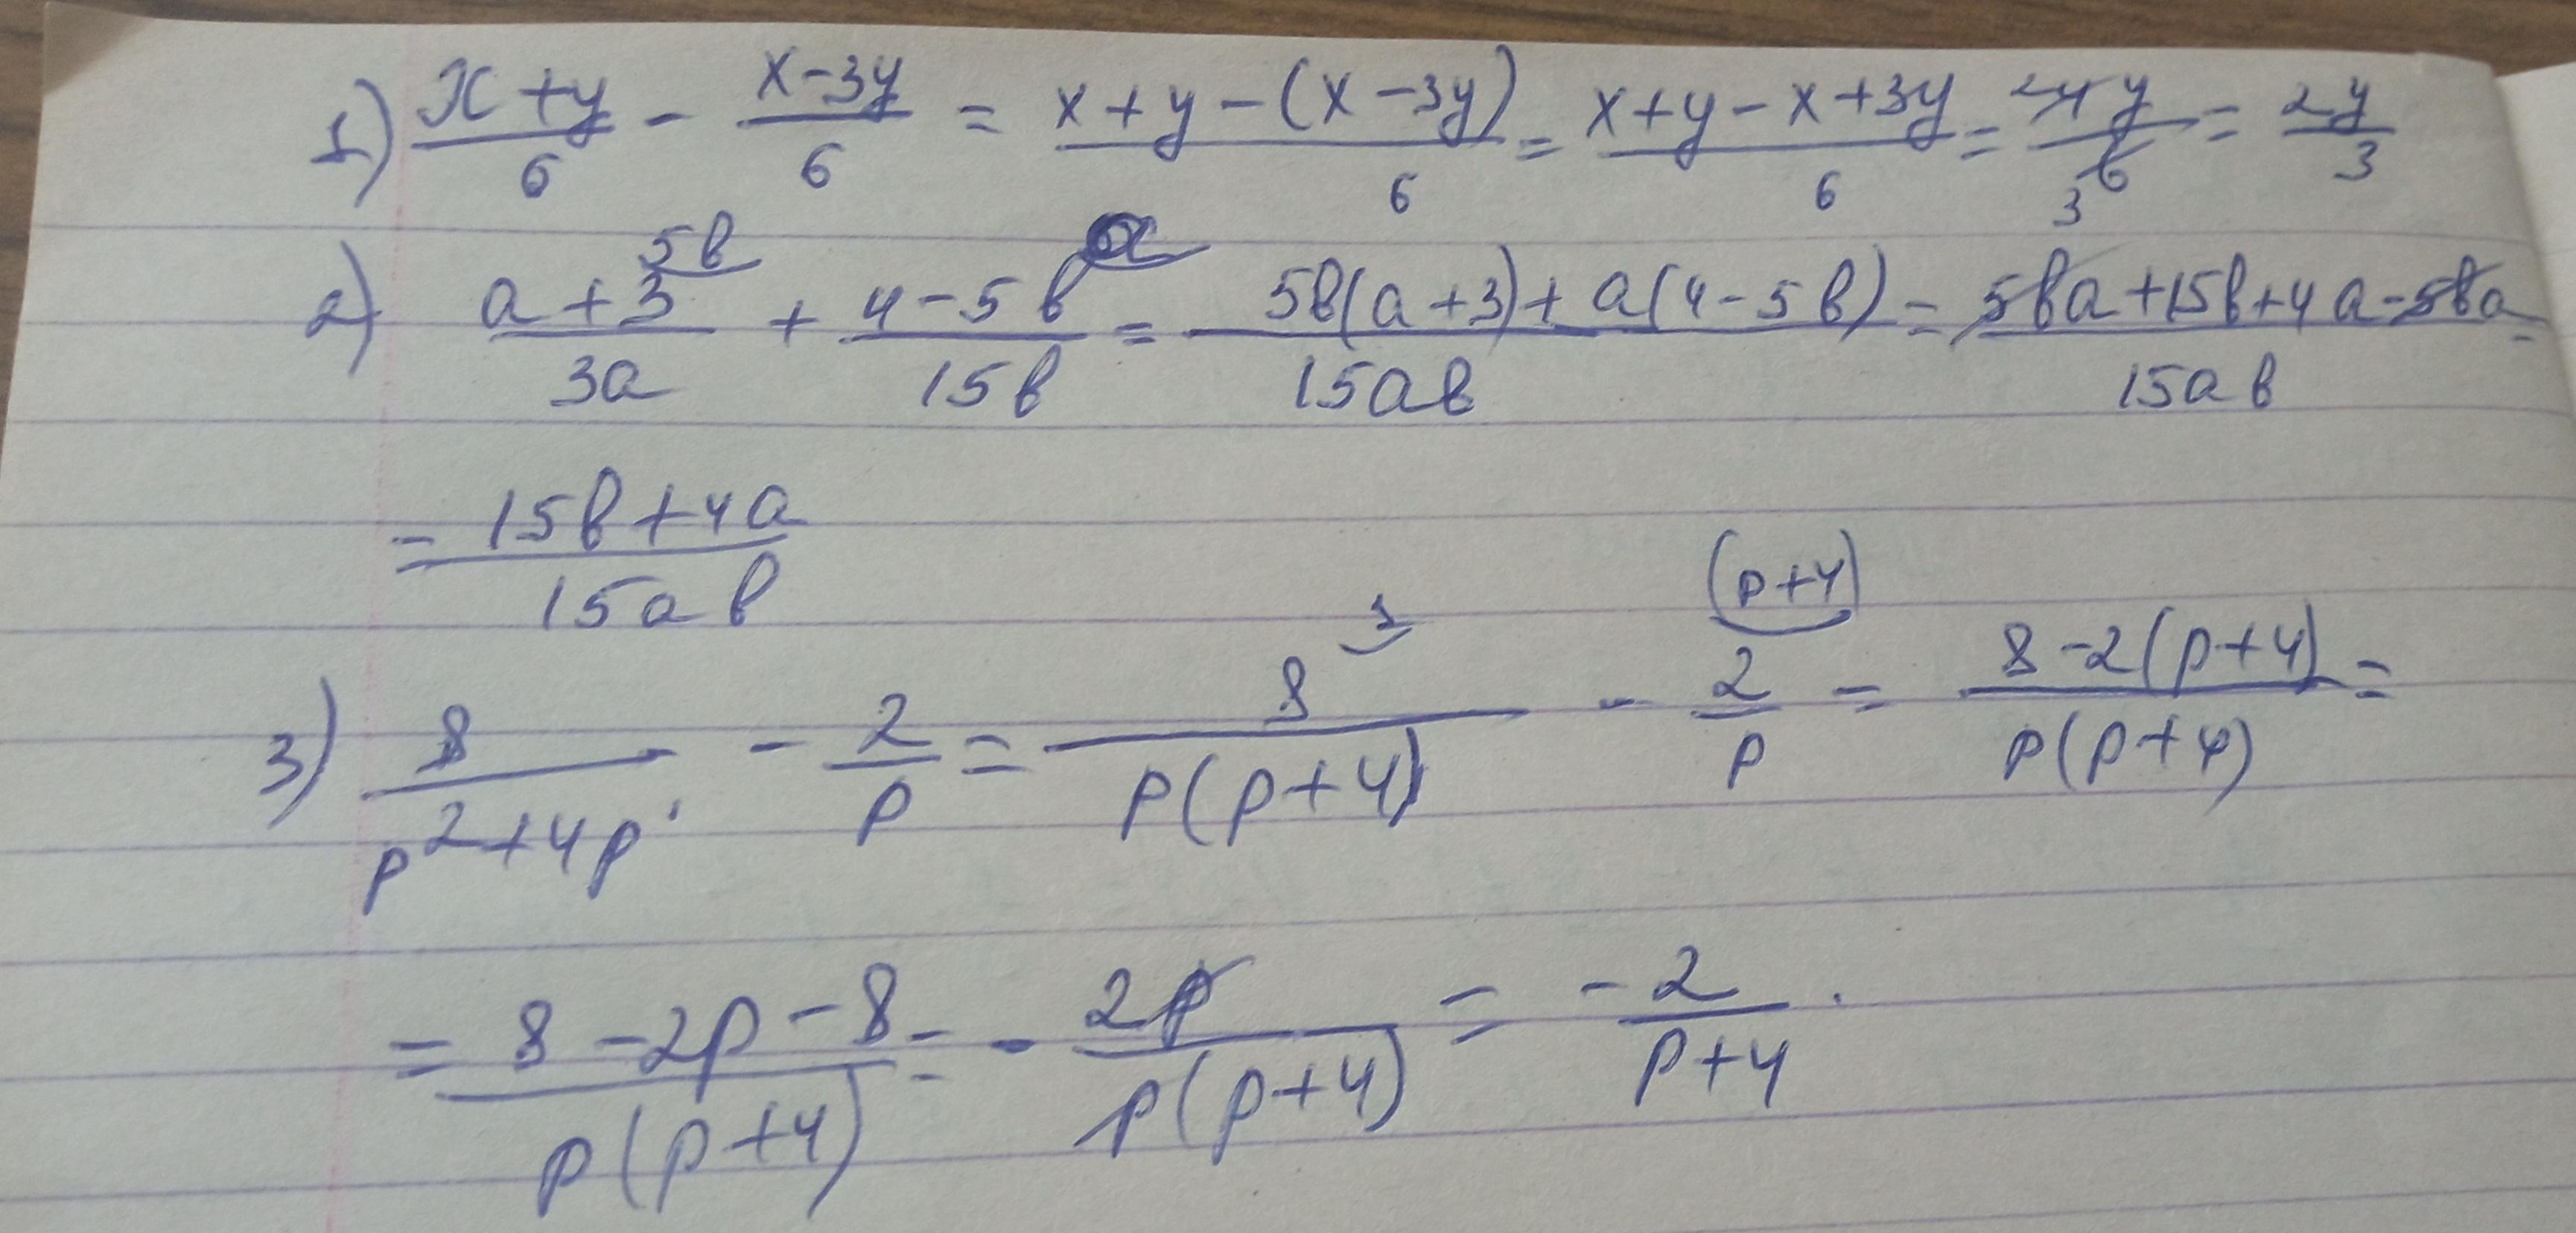 1) (x+y)/6 - (x-3y)/6 = (x+y-(x-3y))/6 = (x+y-x+3y)/6 = 4y/6 = 2y/3
2) (a+3)/3a + (4-5b)/15b = (5b(a+3)+a(4-5b))/15ab = (5ba+15b+4a-5ba)/15ab =
= (15b+4a)/15ab
3) 8/(p²+4p) - 2/p = 8/(p(p+4)) - 2/p = (8-2(p+4))/(p(p+4)) =
= (8-2p-8)/(p(p+4)) = - 2p/(p(p+4)) = -2/(p+4).